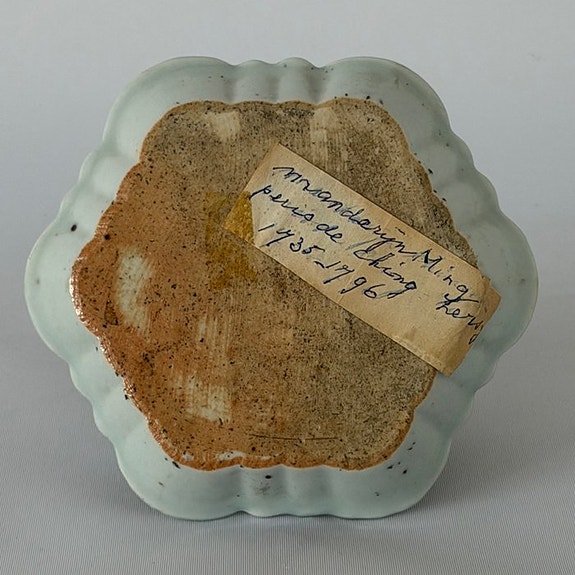 mandarijn, Ming
periode Chiong
1735-1796